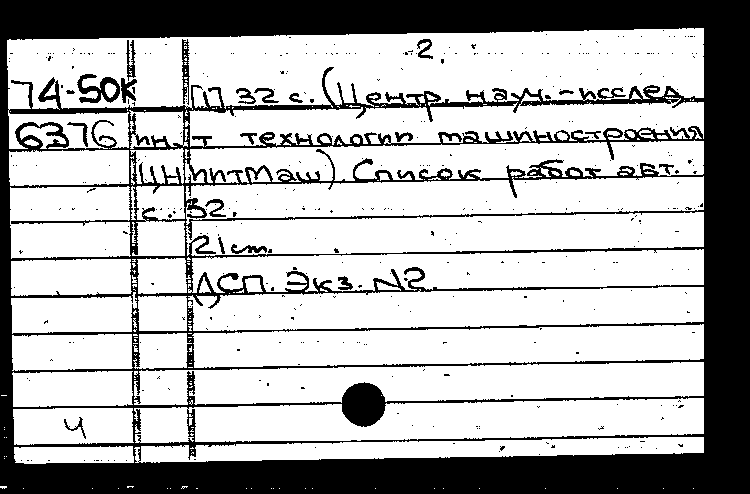 2.
74-50к [1], 32 с. (Центр. науч.-исслед.
6376 ин-т технологии машиностроения
ЦНИИТМаш). Список работ авт.:
с. 32.
21 см.
ДСП. Экз. N2.
4